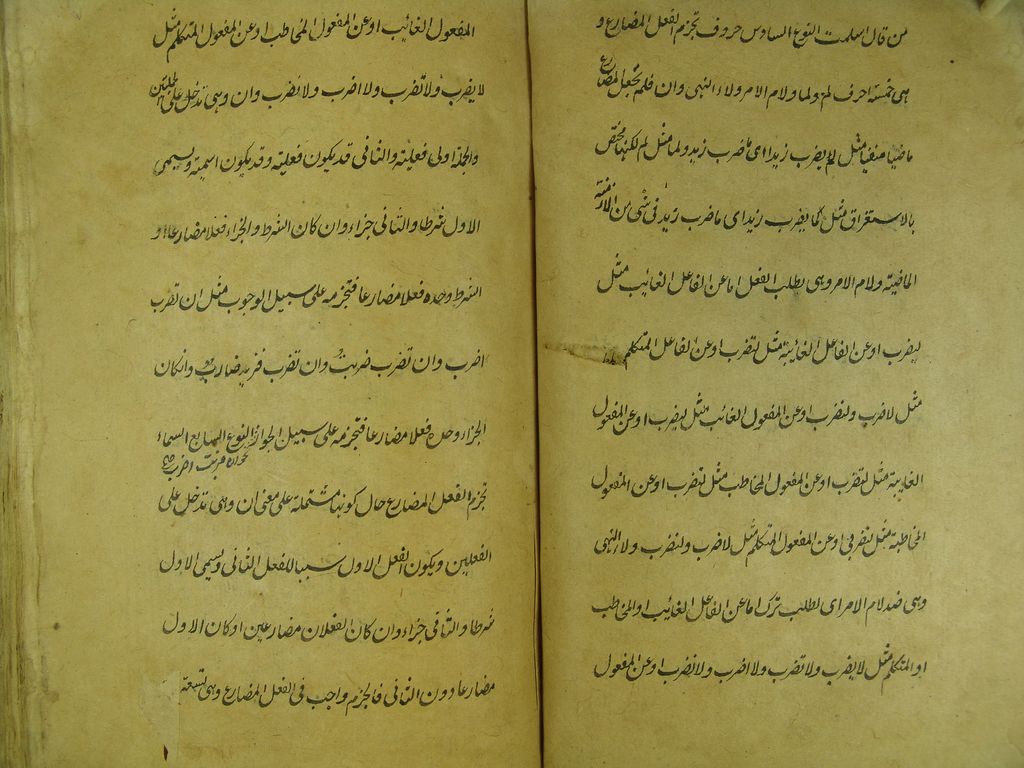 من قال اسلمت النوع السادس حروف تجزم الفعل المضارع و
هى خمسة احرف لم ولما ولام الامر ولاء النهى وان فلم تجعل المضارع
ماضيا منفيا مثل لم يضرب زيد اى ما ضرب زيد ولما مثل لم لكنها تختص
بالاستغراق مثل لما يضرب زيد اى ما ضرب زيد فى شئ من الازمنة
الماضية ولام الامر وهى لطلب الفعل اما عن الفاعل الغائب مثل
ليضرب او عن الفاعل الغايبة مثل لتضرب او عن الفاعل المتكلم
مثل لاضرب ولنضرب او عن المفعول الغائب مثل ليضرب او عن المفعول
الغايبة مثل لتضرب او عن المفعول المخاطب مثل لتضرب او عن المفعول
المخاطبة مثل لتضربى او عن المفعول المتكلم مثل لاضرب ولنضرب ولا النهى
وهى ضد لام الامر اى لطلب ترك اما عن الفاعل الغائب او المخاطب
او المتكلم مثل لا يضرب ولا تضرب ولا اضرب ولا نضرب او عن المفعول
المفعول الغائب او عن المفعول المخاطب او عن المفعول المتكلم مثل
لا يضرب ولا تضرب ولا اضرب ولا نضرب وان وهى تدخل على جملتين
والجملة اولى فعلية والثانى قد يكون فعلية وقد يكون اسمية ويسمى
الاول شرطا والثانى جزاء وان كان الشرط والجزاء فعلا مضارعا او
الشرط وحده فعلا مضارعا فتجزمه على سبيل الوجوب مثل ان تضرب
اضرب وان تضرب ضربت وان تضرب فزيد ضارب وان كان
الجزاء وحده فعلا مضارعا فتجزمه على سبيل الجواز النوع السابع اسماء
نحو ان ضربت اضرب
تجزم الفعل المضارع حال كونها مشتملة على معنى ان وهى تدخل على
الفعلين ويكون الفعل الاول سببا للفعل الثانى ويسمى الاول
شرطا والثانى جزاء وان كان الفعلان مضارعين او كان الاول
مضارعا دون الثانى فالجزم واجب فى الفعل المضارع وهى تسعة